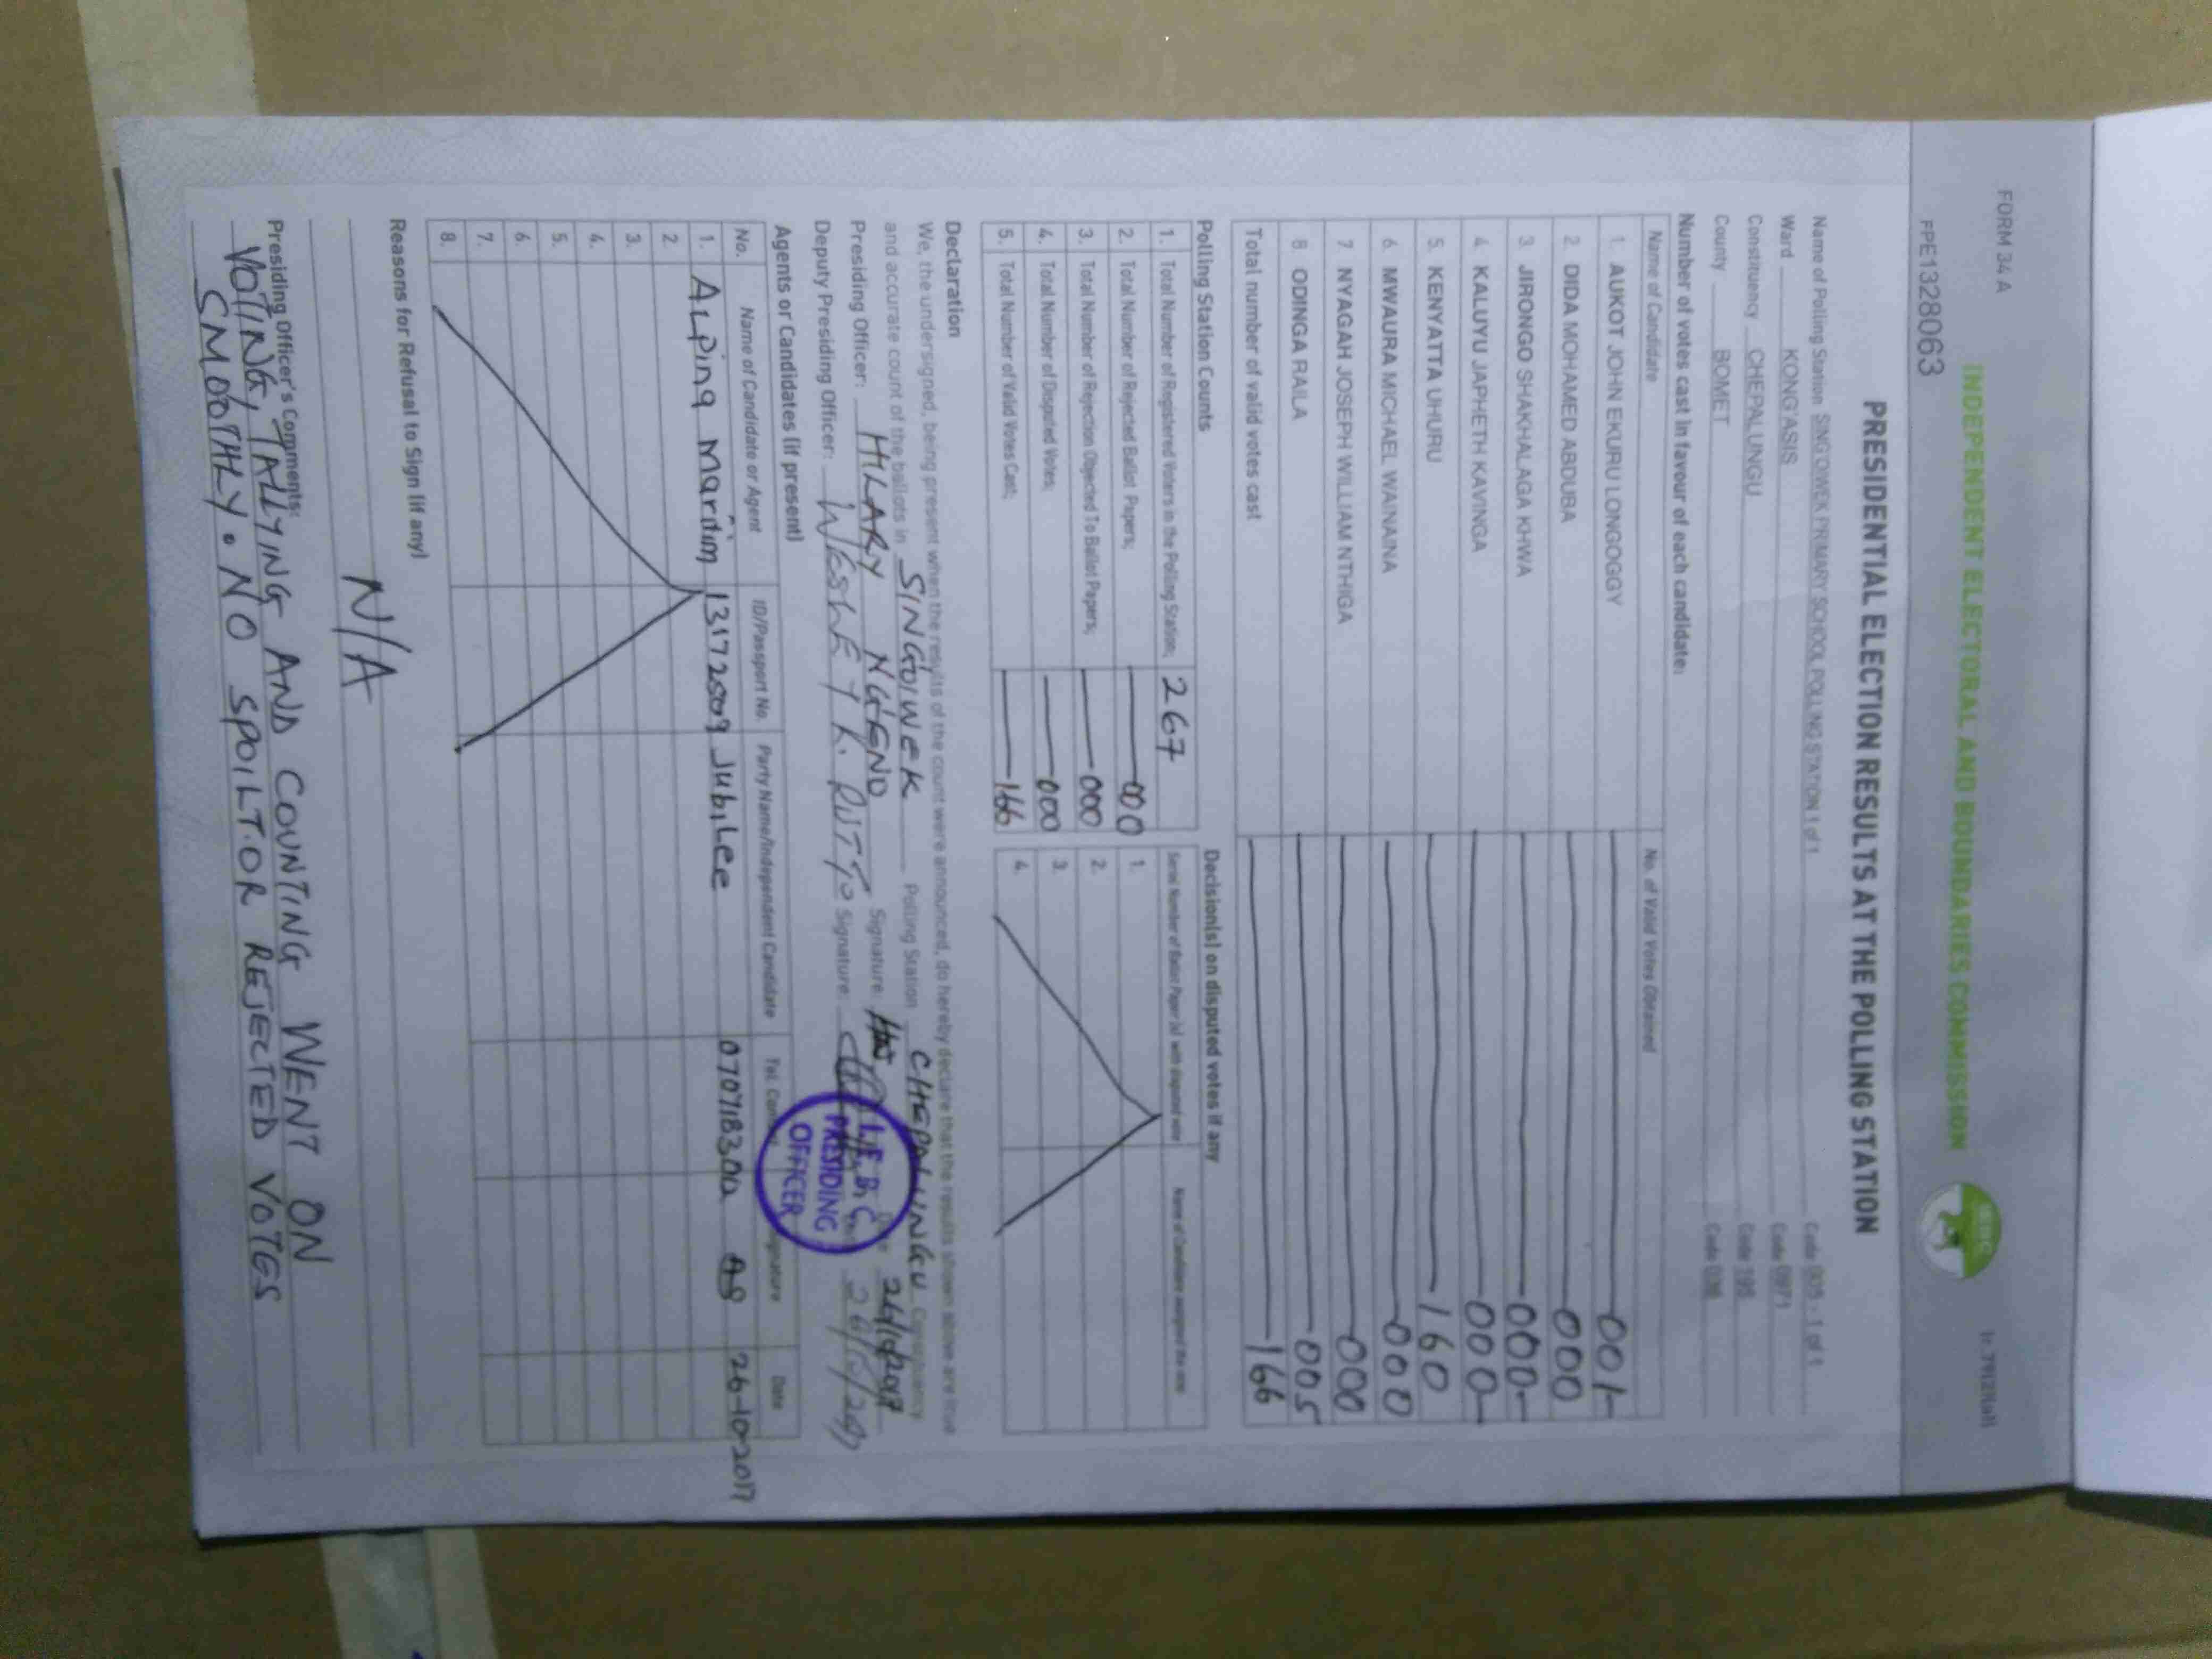 FORM 34 A
INDEPENDENT ELECTORAL AND BOUNDARIES COMMISSION
FPE1328063
PRESIDENTIAL ELECTION RESULTS AT THE POLLING STATION
Name of Polling Station SINGOIWEK PRIMARY SCHOOL POLLING STATION 1 of 1
Ward KONG'ASIS
Constituency CHEPALUNGU Code 195
County BOMET Code 036
Number of votes cast in favour of each candidate:
Name of Candidate No. of Valid Votes Obtained
1. AUKOT JOHN EKURU LONGOGGY 001
2. DIDA MOHAMED ABDUBA 000
3. JIRONGO SHAKHALAGA KHWA 000
4. KALUYU JAPHETH KAVINGA 000
5. KENYATTA UHURU 160
6. MWAURA MICHAEL WAINAINA 000
7. NYAGAH JOSEPH WILLIAM NTHIGA 000
8. ODINGA RAILA 005
Total number of valid votes cast 166
Polling Station Counts
1. Total Number of Registered Voters in the Polling Station; 267
2. Total Number of Rejected Ballot Papers; 000
3. Total Number of Rejection Objected To Ballot Papers; 000
4. Total Number of Disputed Votes; 000
5. Total Number of Valid Votes Cast; 166
Decision(s) on disputed votes if any
1.
2.
3.
4.
Declaration
We, the undersigned, being present when the results of the count were announced, do hereby declare that the results shown above are true
and accurate count of the ballots in SINGOIWEK Polling Station CHEPALUNGU Constituency
Presiding Officer: HILARY NGENO Signature: 26/10/2017
Deputy Presiding Officer: RUTTO Signature: 26/10/2017
I.E.B.C
PRESIDING
OFFICER
Agents or Candidates (if present)
No. Name of Candidate or Agent ID/Passport No. Party Name/Independent Candidate Tel. Contact Signature Date
1. ALPing Maritim 13172809 Jubilee 0707183300 26-10-2017
2.
3.
4.
5.
6.
7.
8.
Reasons for Refusal to Sign (if any)
N/A
Presiding Officer's Comments:
VOTING, TALLYING AND COUNTING WENT ON
SMOOTHLY. NO SPOILT OR REJECTED VOTES